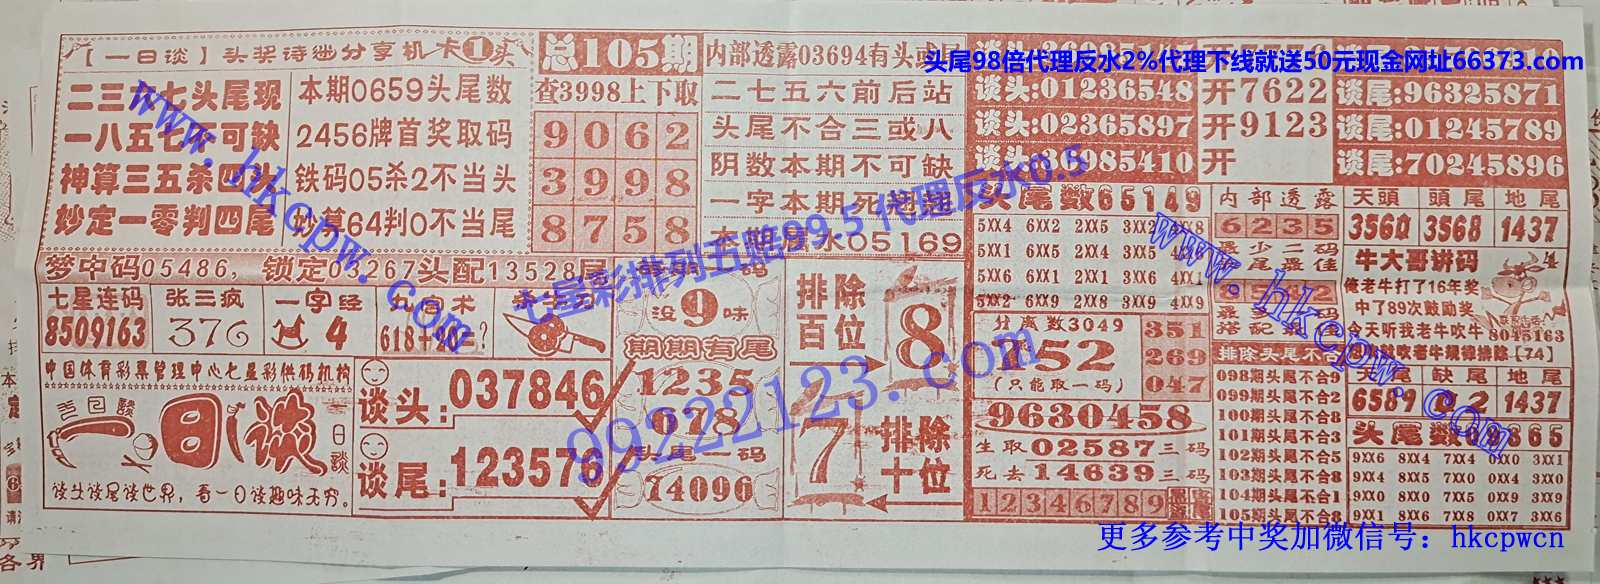 【一日谈】头奖诗逊分享机 卡1头
二三 七头尾现
一八五七 可缺
神算三五杀四头
妙定一零判四尾
本期0659头尾数
2456牌首奖取码
铁码05杀2不当头
妙算64判0不当尾
总105期
查3998上下取
9062
3998
8758
内部透露03694有头或尾
二七五六前后站
头尾不合三或八
阴数本期不可缺
一字本期死
本期 水05169
头尾98倍代理反水2%代理下线就送50元现金网址66373.com
谈头:01236548 开7622 谈尾:96325871
谈头:02365897 开9123 谈尾:01245789
谈头:36985410 开 谈尾:70245896
梦中码05486，锁定03267头配13528尾
七星连码
8509163
张三疯
376
一字经
4
九宫术
没9味
期期有尾
1235
078
头尾一码
74096
排除百位
8
7
排除十位
中国体育彩票管理中心七星彩供码机构
一日谈
日谈
谈头谈尾谈世界，看一日谈趣味无穷。
谈头:037846
谈尾:123576
头尾数65149
5XX4 6XX2 2XX5 3XX2 XX8
5XX1 6XX5 2XX4 3XX5 4XX
5XX6 6XX1 2XX1 3XX6 4XX1
5XX2 6XX9 2XX8 3XX9 4XX9
分离数3049
752
(只能取一码)
351
269
047
9630458
生取02587三码
死去14639三码
123456789
内部透露
6235
最少二码
头尾最佳
搭配最佳
排除头尾不合
098期头尾不合9
099期头尾不合2
100期头尾不合8
101期头尾不合3
102期头尾不合5
103期头尾不合8
104期头尾不合1
105期头尾不合8
天頭 頭尾 地尾
3560 3568 1437
牛大哥讲码
俺老牛打了16年奖
中了89次鼓励奖
今天听我老牛吹牛
8045163
吹老牛规律排除【74】
天尾 缺尾 地尾
6589 1437
头尾数 9865
9XX6 8XX4 7XX4 0XX0 3XX1
9XX4 8XX5 7XX0 0XX4 3XX0
9XX0 8XX0 7XX5 0XX9 3XX9
9XX1 8XX6 7XX8 0XX7 3XX6
www.hkcpw.com
七星彩排列五赔99.5代理反水0.5
99222123.com
www.hkcpw.com
更多参考中奖加微信号：hkcpwcn